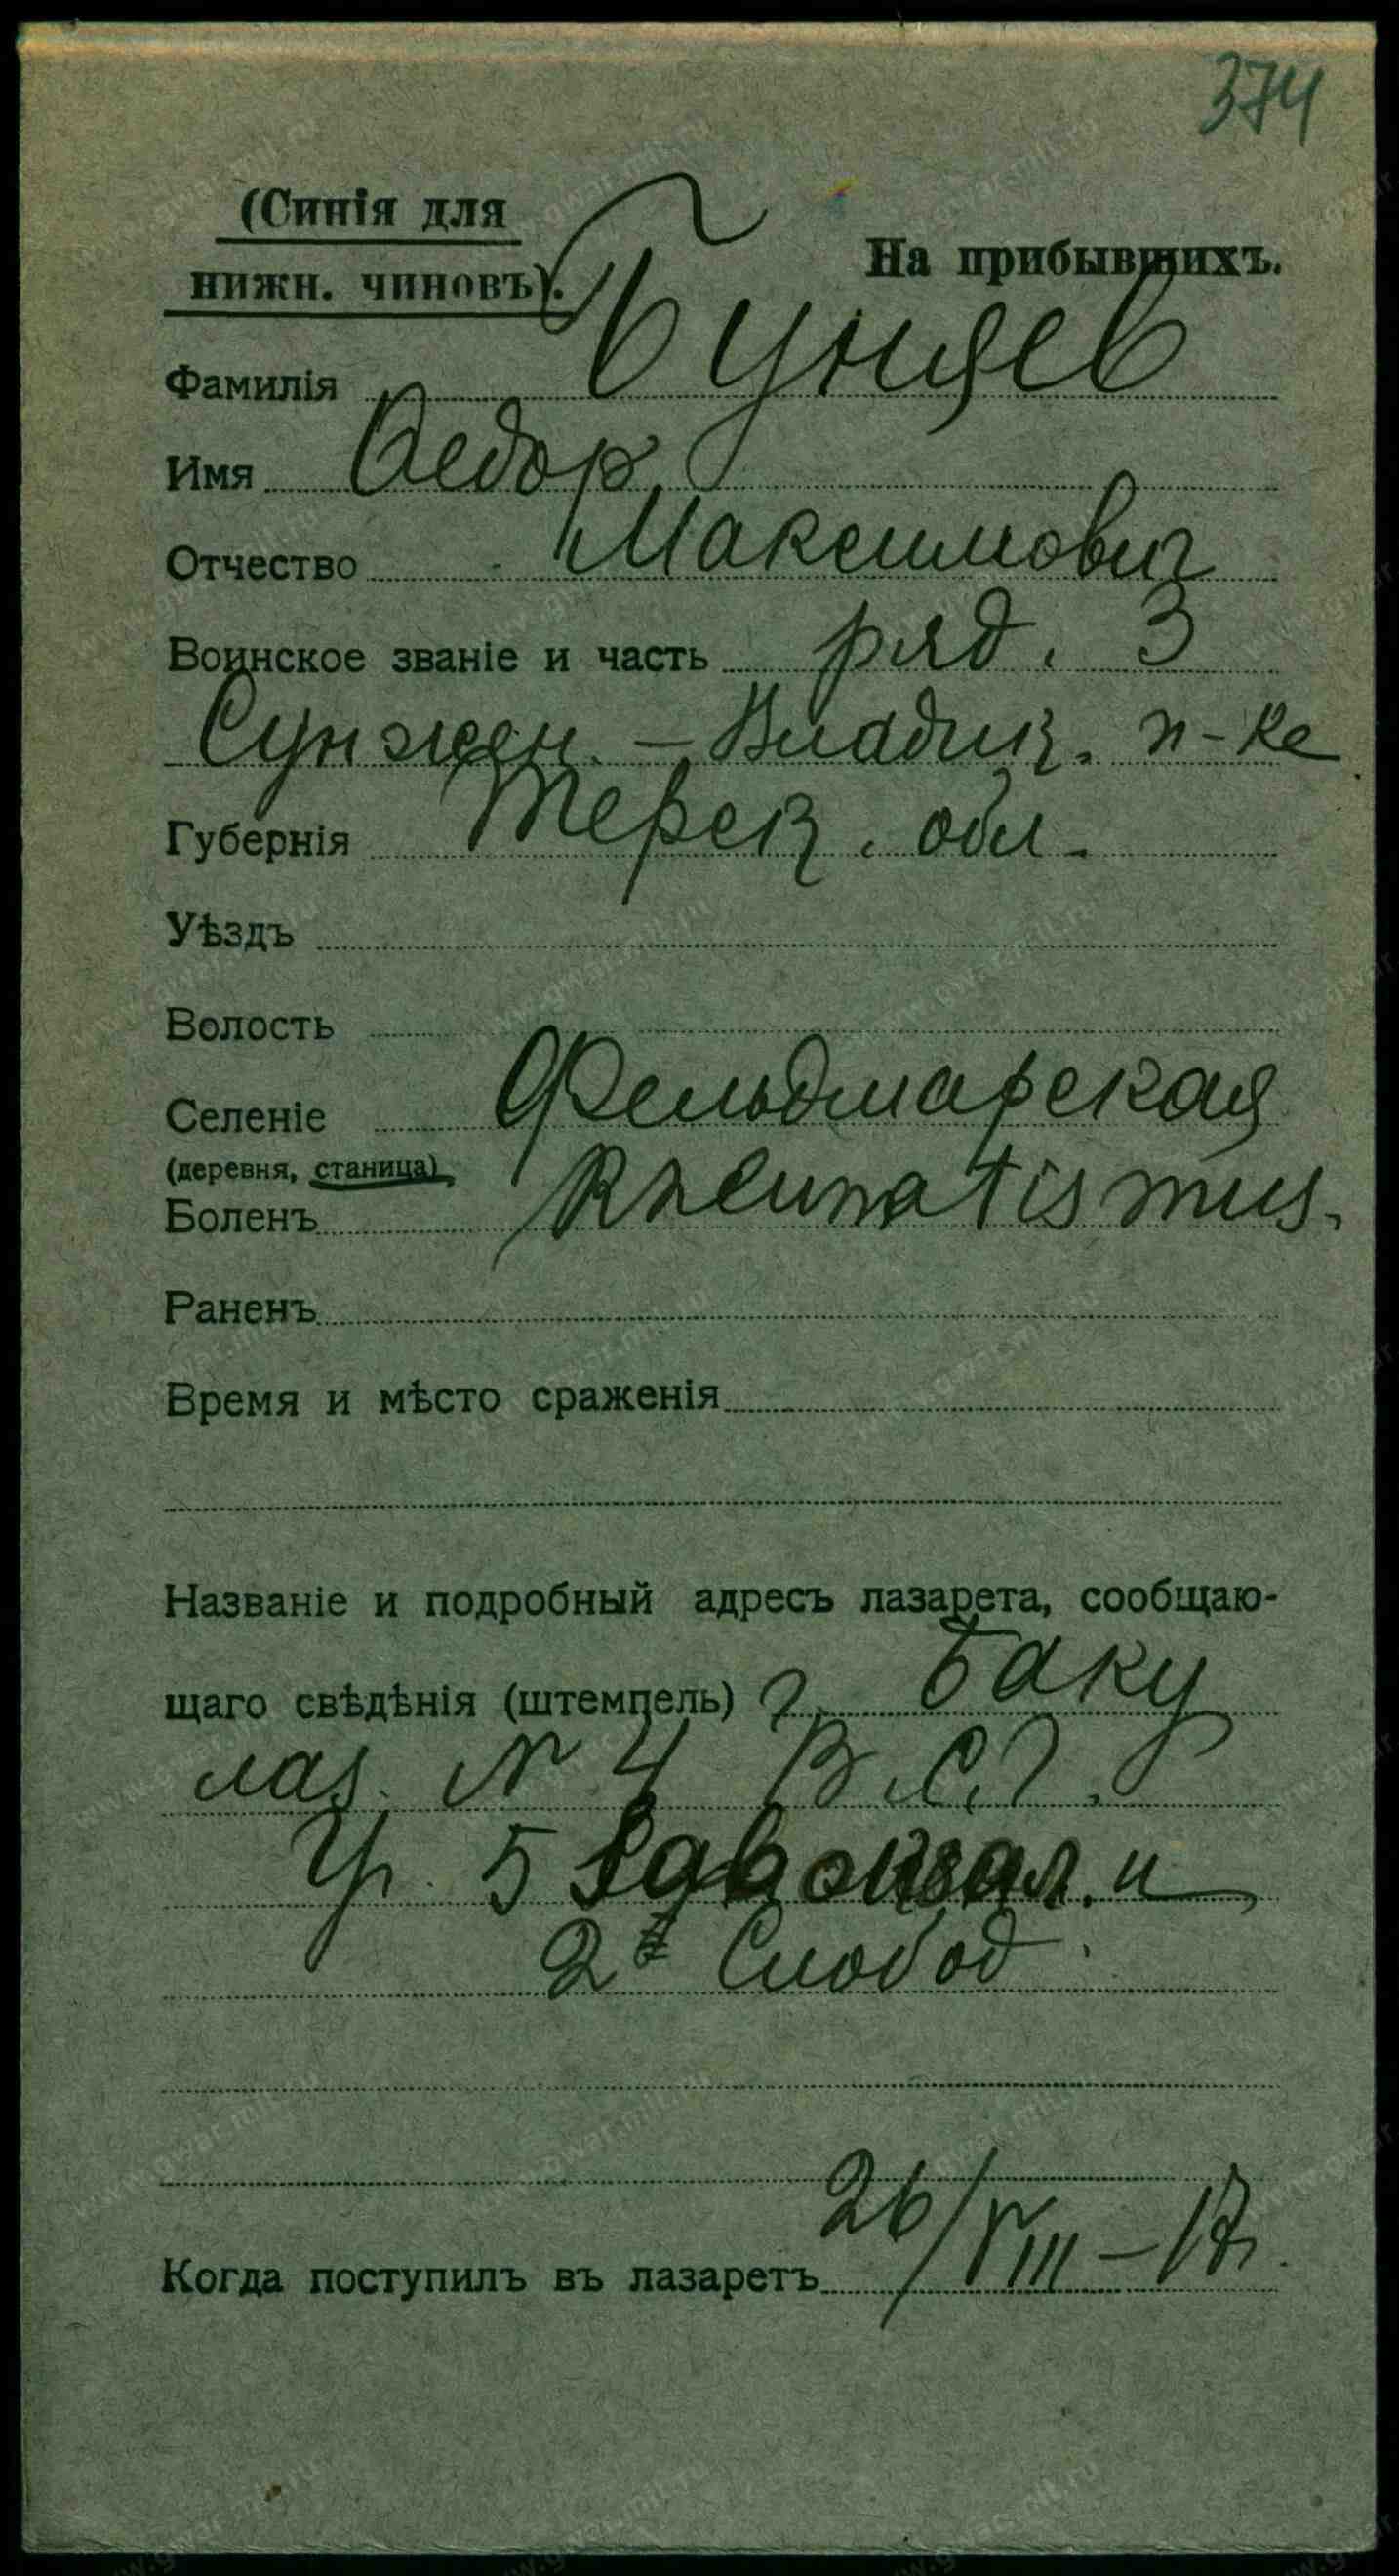 374
(Синія для
нижн. чиновъ).
На прибывшихъ.
Фамилія Буняев
Имя Федор
Отчество Максимович
Воинское званіе и часть ряд. 3
Сунжен. - Владик. п-ка
Губернія Терск. обл.
Уѣздъ
Волость
Селеніе Фельдмарская
(деревня, станица)
Боленъ Rheumatismus.
Раненъ
Время и мѣсто сраженія
Названіе и подробный адресъ лазарета, сообщаю-
щаго свѣдѣнія (штемпель) г. Баку
лаз. № 4 В.С.Г.
Уг. 5 и
2й Слобод.
Когда поступилъ въ лазаретъ 26/VIII - 17г.